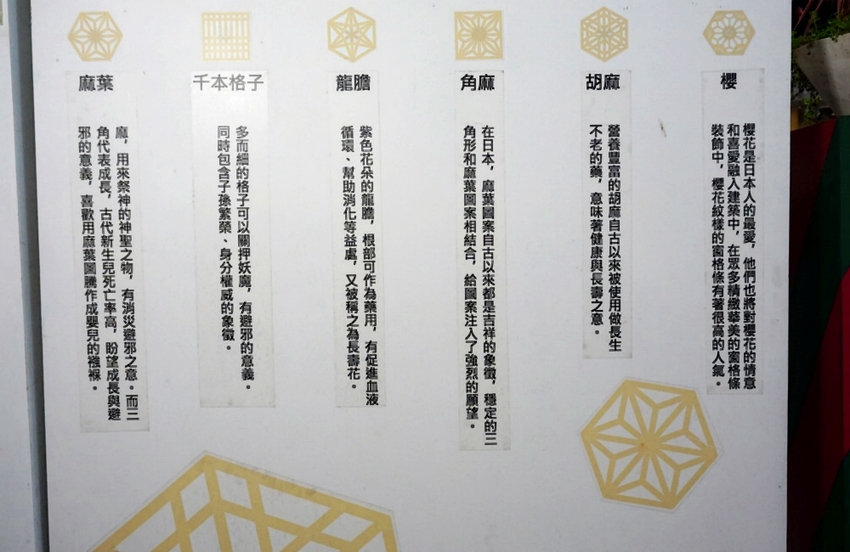 櫻
櫻花是日本人的最愛，他們也將對櫻花的情意
和喜愛融入建築中，在眾多精緻華美的窗格條
裝飾中，櫻花紋樣的窗格條有著很高的人氣。
胡麻
營養豐富的胡麻自古以來被使用做長生
不老的藥，意味著健康與長壽之意。
角麻
在日本，麻葉圖案自古以來都是吉祥的象徵，穩定的三
角形和麻葉圖案相結合，給圖案注入了強烈的願望。
龍膽
紫色花朵的龍膽，根部可作為藥用，有促進血液
循環、幫助消化等益處，又被稱之為長壽花。
千本格子
多而細的格子可以關押妖魔，有避邪的意義。
同時包含子孫繁榮、身分權威的象徵。
麻葉
麻，用來祭神的神聖之物，有消災避邪之意。而三
角代表成長，古代新生兒死亡率高，盼望成長與避
邪的意義，喜歡用麻葉圖騰作成嬰兒的襁褓。